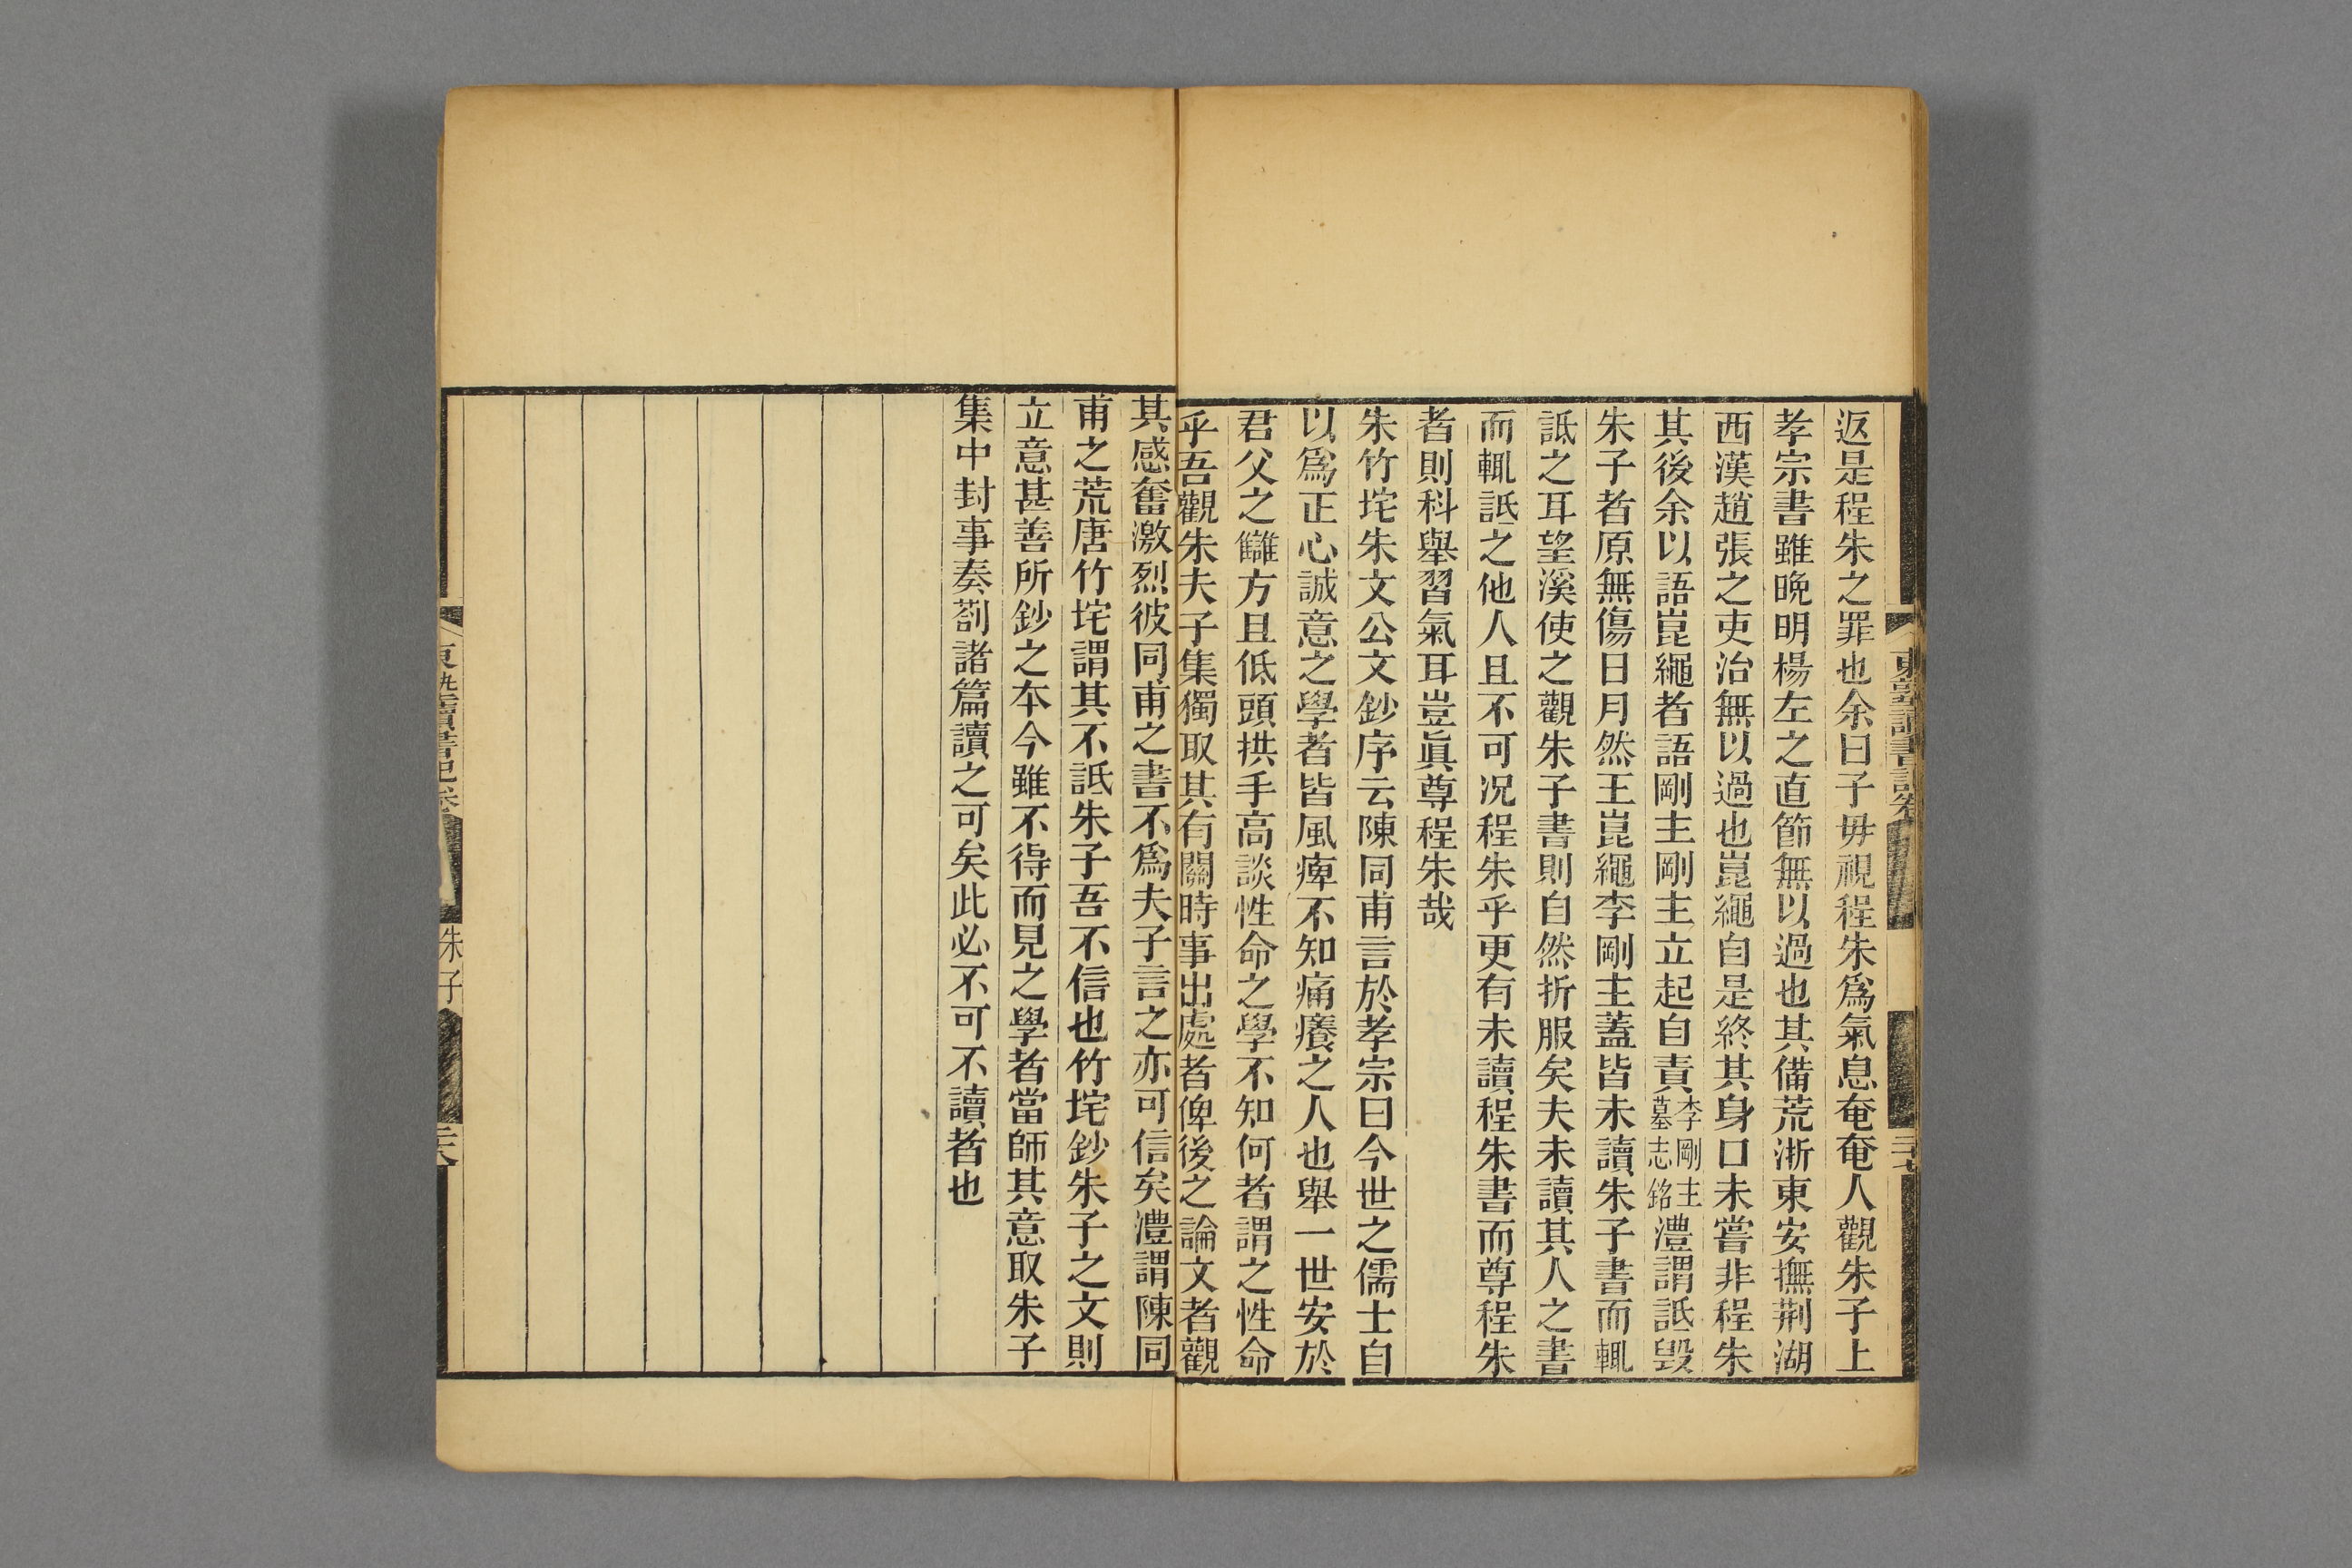 東塾讀書記卷
返是程朱之罪也余曰子毋視程朱爲氣息奄奄人觀朱子上
孝宗書雖晚明楊左之直節無以過也其備荒浙東安撫荆湖
西漢趙張之吏治無以過也崑繩自是終其身口未嘗非程朱
其後余以語崑繩者語剛主剛主立起自責李剛主墓志銘澧謂詆毀
朱子者原無傷日月然王崑繩李剛主蓋皆未讀朱子書而輒
詆之耳望溪使之觀朱子書則自然折服矣夫未讀其人之書
而輒詆之他人且不可况程朱乎更有未讀程朱書而尊程朱
者則科舉習氣耳豈眞尊程朱哉
朱竹垞朱文公文鈔序云陳同甫言於孝宗曰今世之儒士自
以爲正心誠意之學者皆風痺不知痛癢之人也舉一世安於
君父之讎方且低頭拱手高談性命之學不知何者謂之性命
乎吾觀朱夫子集獨取其有關時事出處者俾後之論文者觀
其感奮激烈彼同甫之書不爲夫子言之亦可信矣澧謂陳同
甫之荒唐竹垞謂其不詆朱子吾不信也竹垞鈔朱子之文則
立意甚善所鈔之本今雖不得而見之學者當師其意取朱子
集中封事奏劄諸篇讀之可矣此必不可不讀者也
讀書記卷
朱子